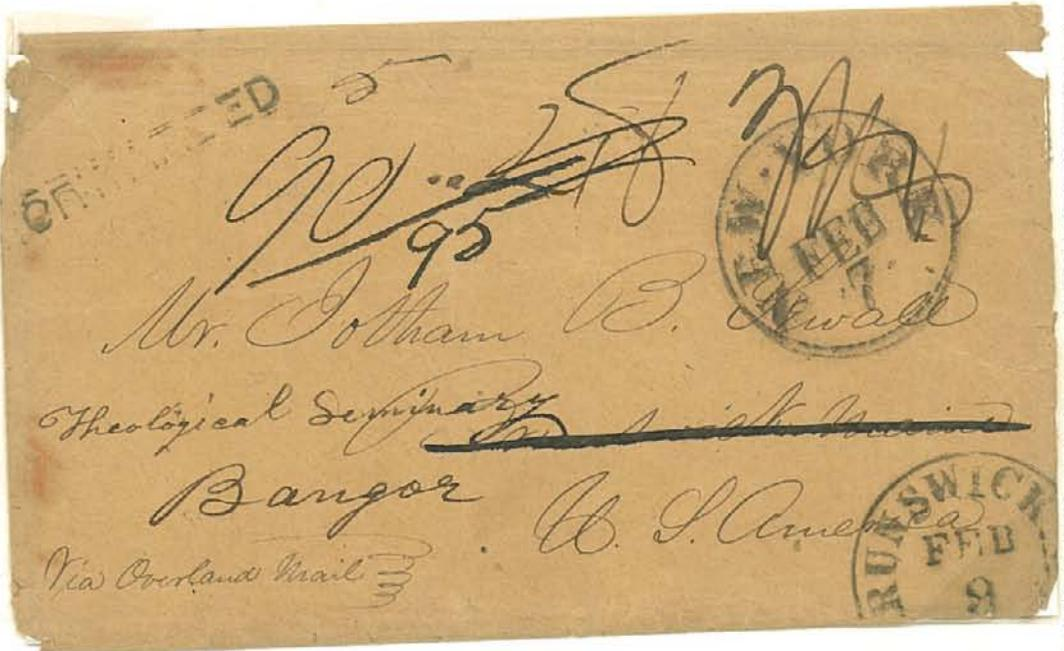 5
90
95
NEW·YORK
FEB
7
Mr. Jotham B. Sewall
Theological Seminary
Maine
Bangor
U. S. America
Via Overland Mail
RUNSWICK
FEB
9